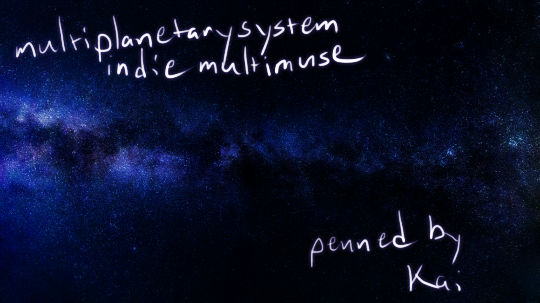 multiplanetarysystem
indie multimuse
penned by
Kai